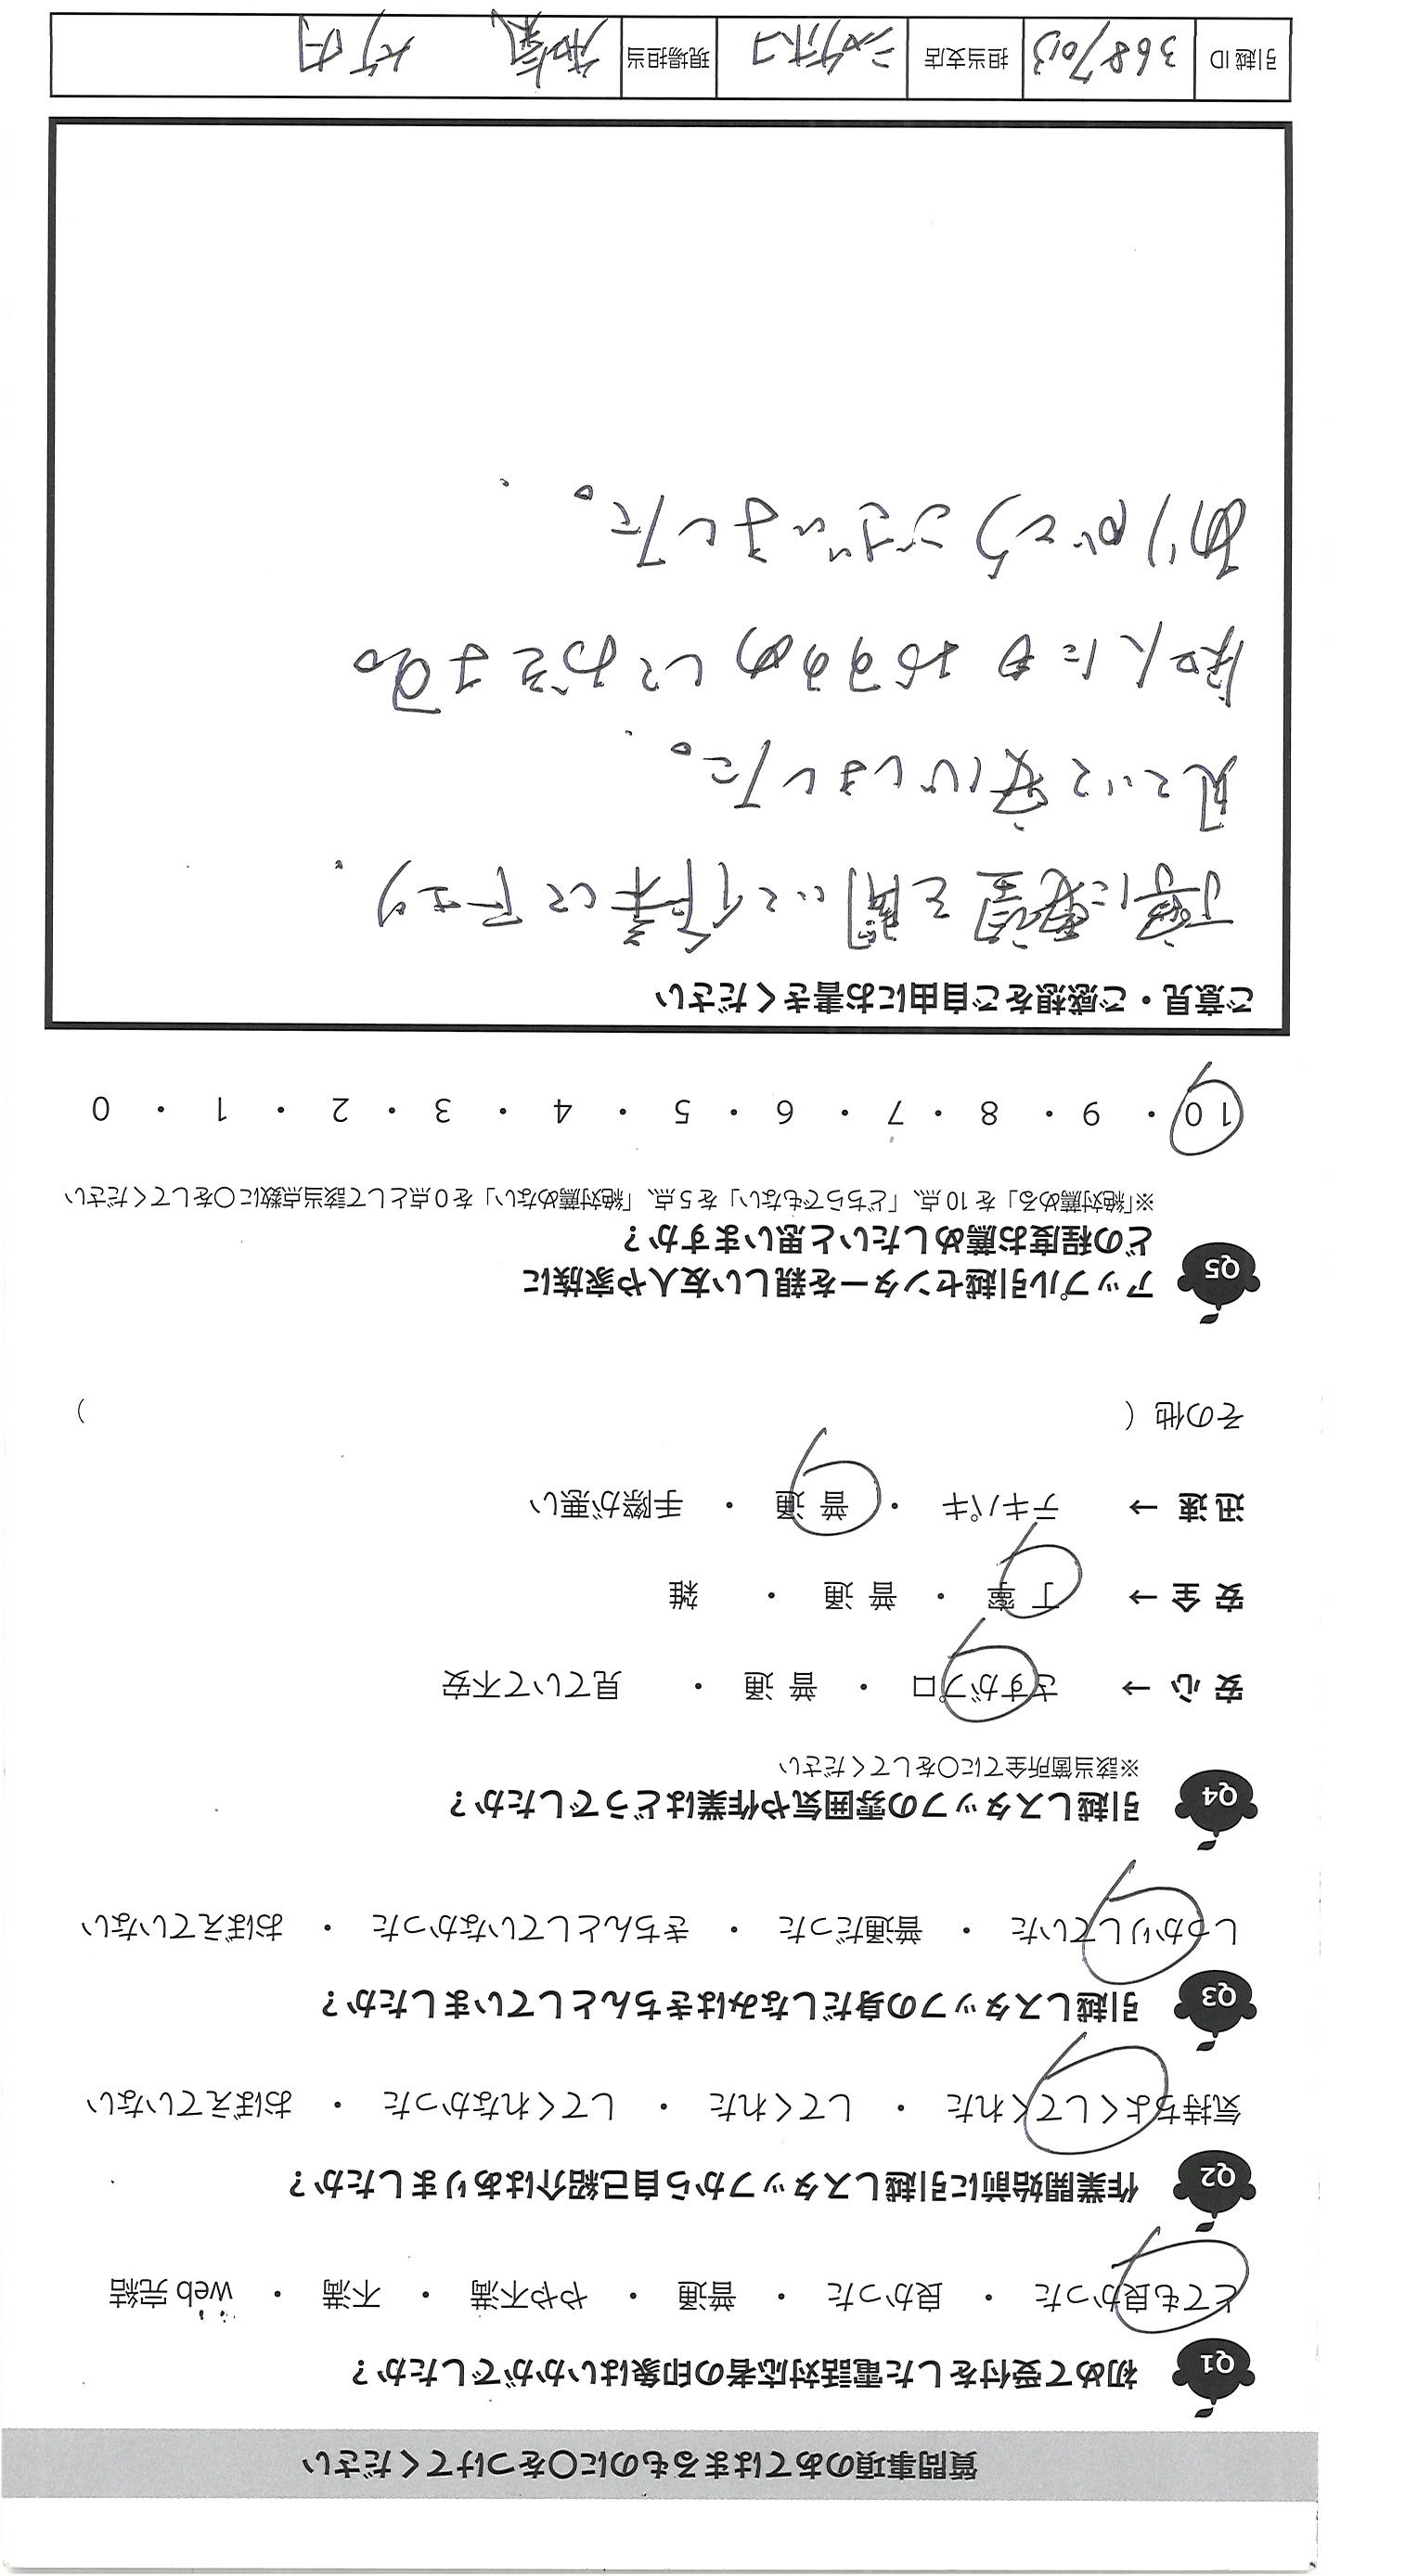 質問事項のあてはまるものに〇をつけてください
Q1 初めて受付をした電話対応者の印象はいかがでしたか？
とても良かった ・ 良かった ・ 普通 ・ やや不満 ・ 不満 ・ web 完結
Q2 作業開始前に引越しスタッフから自己紹介はありましたか？
気持ちよくしてくれた ・ してくれた ・ してくれなかった ・ おぼえていない
Q3 引越しスタッフの身だしなみはきちんとしていましたか？
しっかりしていた ・ 普通だった ・ きちんとしていなかった ・ おぼえていない
Q4 引越しスタッフの雰囲気や作業はどうでしたか？
※該当箇所全てに〇をしてください
安 心 → さすがプロ ・ 普 通 ・ 見ていて不安
安 全 → 丁 寧 ・ 普 通 ・ 雑
迅 速 → テキパキ ・ 普 通 ・ 手際が悪い
その他（ ）
Q5 アップル引越センターを親しい友人や家族に
どの程度お薦めしたいと思いますか？
※「絶対薦める」を 10 点、「どちらでもない」を 5 点、「絶対薦めない」を 0 点として該当点数に〇をしてください
10 ・ 9 ・ 8 ・ 7 ・ 6 ・ 5 ・ 4 ・ 3 ・ 2 ・ 1 ・ 0
ご意見・ご感想をご自由にお書きください
丁寧に要望を聞いて作業して下さり
見ていて安心しました。
知人にもおすすめしておきます。
ありがとうございました。
引越 ID 3687013 担当支店 現場担当 竹内